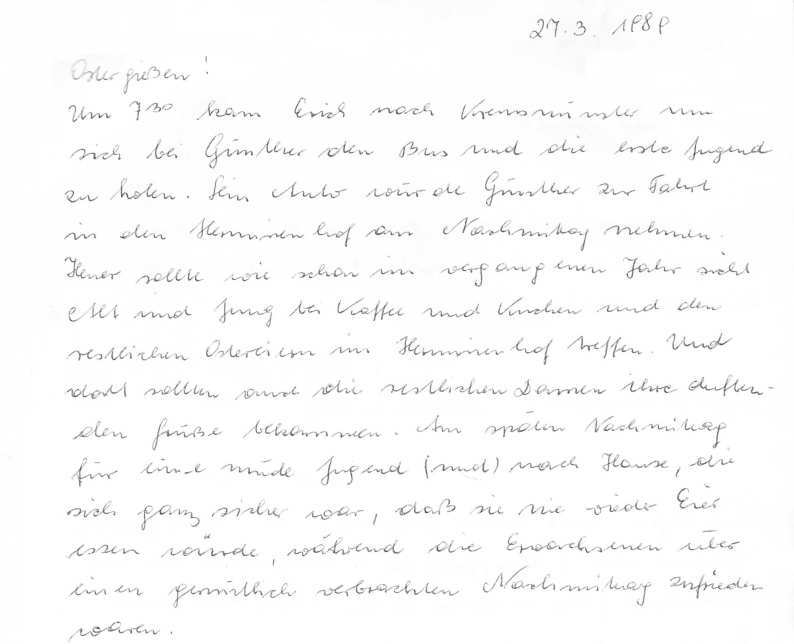 27.3. 1989
Ostergrüßen!
Um 7 30 kam Erich nach Kremsmünster um
sich bei Günther den Bus und die erste Jugend
zu holen. Sein Auto würde Günther zur Fahrt
in den Herminenhof am Nachmittag nehmen.
Heuer sollte wie schon im vergangenen Jahr sich
Alt und Jung bei Kaffee und Kuchen und den
restlichen Ostereiern im Herminenhof treffen. Und
dort sollten auch die restlichen Damen ihre duften-
den Grüße bekommen. Am späten Nachmittag
für eine müde Jugend (und) nach Hause, die
sich ganz sicher war, daß sie nie wieder Eier
essen würde, während die Erwachsenen über
einen gemütlich verbrachten Nachmittag zufrieden
waren.